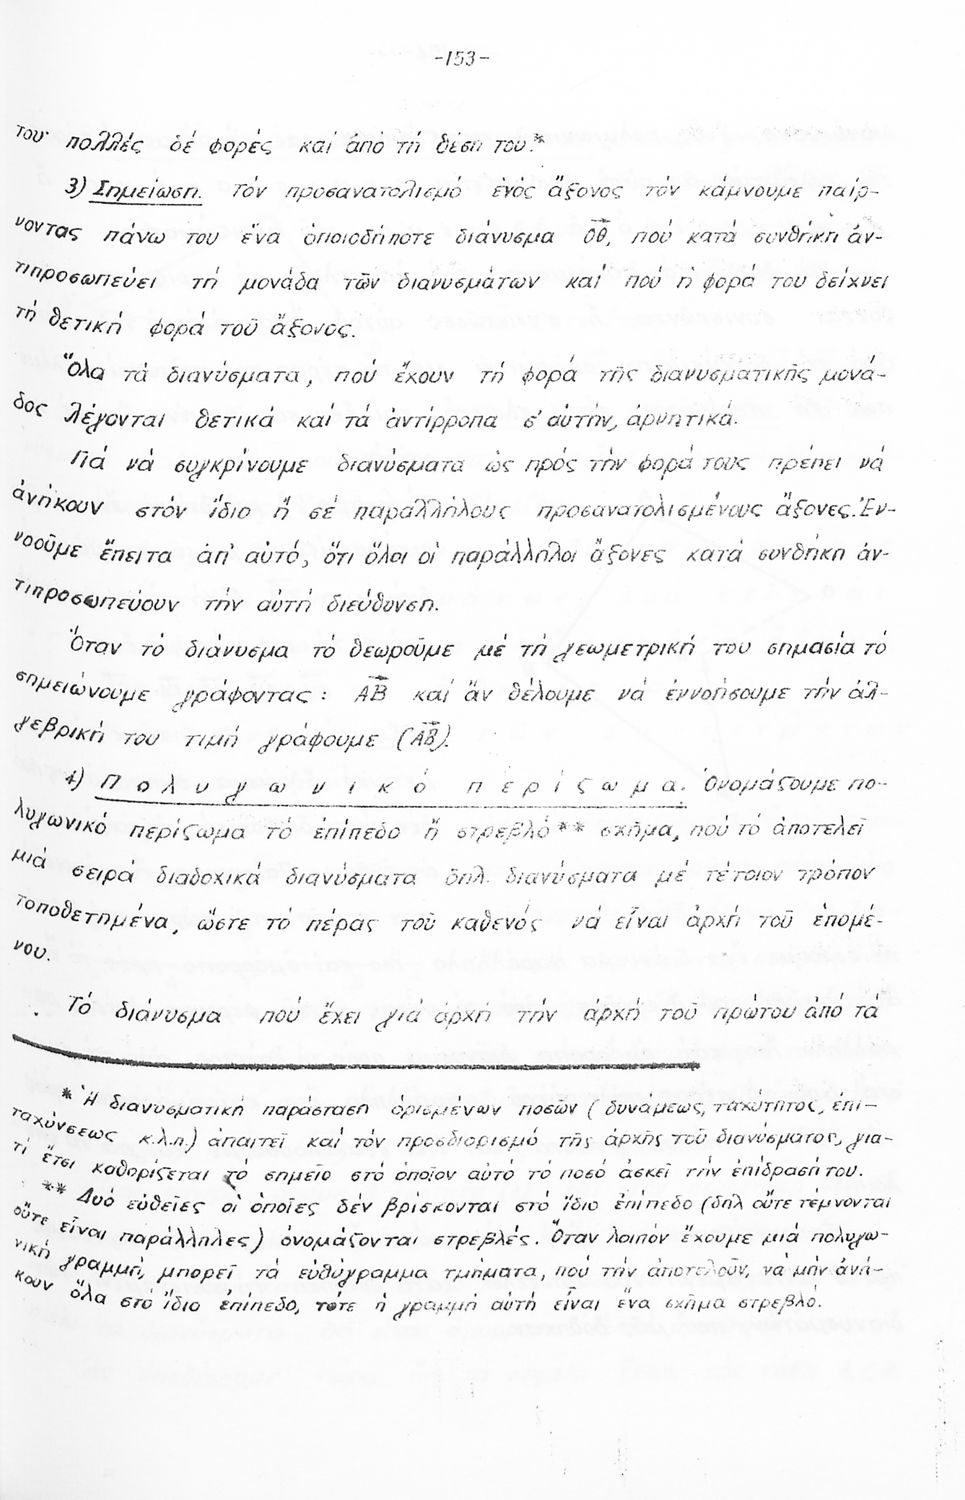 -153-
του· πολλές δέ φορές καί ἀπό τή θέση του.*
3) Σημείωση. Τόν προσανατολισμό ἑνός ἄξονος τόν κάμνουμε παίρ-
νοντας πάνω του ἕνα ὁποιοδήποτε διάνυσμα ΟΘ, πού κατά συνθήκη ἀν-
τιπροσωπεύει τή μονάδα τῶν διανυσμάτων καί πού ἡ φορά του δείχνει
τή θετική φορά τοῦ ἄξονος.
Ὅλα τά διανύσματα, πού ἔχουν τή φορά τῆς διανυσματικῆς μονά-
δος λέγονται θετικά καί τά ἀντίρροπα σ' αὐτήν, ἀρνητικά.
Γιά νά συγκρίνουμε διανύσματα ὡς πρός τήν φορά τους πρέπει νά
ἀνήκουν στόν ἴδιο ἤ σέ παραλλήλους προσανατολισμένους ἄξονες. Ἐν-
νοοῦμε ἔπειτα ἀπ' αὐτό, ὅτι ὅλοι οἱ παράλληλοι ἄξονες κατά συνθήκη ἀν-
τιπροσωπεύουν τήν αὐτή διεύθυνση.
Ὅταν τό διάνυσμα τό θεωροῦμε μέ τή γεωμετρική του σημασία τό
σημειώνουμε γράφοντας : ΑΒ καί ἄν θέλουμε νά ἐννοήσουμε τήν ἀλ-
γεβρική του τιμή γράφουμε (ΑΒ).
4) Πολυγωνικό περίζωμα. Ὀνομάζουμε πο-
λυγωνικό περίζωμα τό ἐπίπεδο ἤ στρεβλό** σχῆμα, πού τό ἀποτελεῖ
μιά σειρά διαδοχικά διανύσματα δηλ. διανύσματα μέ τέτοιον τρόπον
τοποθετημένα, ὥστε τό πέρας τοῦ καθενός νά εἶναι ἀρχή τοῦ ἑπομέ-
νου.
Τό διάνυσμα πού ἔχει γιά ἀρχή τήν ἀρχή τοῦ πρώτου ἀπό τά
* Ἡ διανυσματική παράσταση ὁρισμένων ποσῶν (δυνάμεως, ταχύτητος, ἐπι-
ταχύνσεως κ.λ.π.) ἀπαιτεῖ καί τόν προσδιορισμό τῆς ἀρχῆς τοῦ διανύσματος, για-
τί ἔτσι καθορίζεται τό σημεῖο στό ὁποῖον αὐτό τό ποσό ἀσκεῖ τήν ἐπίδρασή του.
** Δυό εὐθεῖες οἱ ὁποῖες δέν βρίσκονται στό ἴδιο ἐπίπεδο (δηλ οὔτε τέμνονται
οὔτε εἶναι παράλληλες) ὀνομάζονται στρεβλές. Ὅταν λοιπόν ἔχουμε μιά πολυγω-
νική γραμμή, μπορεῖ τά εὐθύγραμμα τμήματα, πού τήν ἀποτελοῦν, νά μήν ἀνή-
κουν ὅλα στό ἴδιο ἐπίπεδο, τότε ἡ γραμμή αὐτή εἶναι ἕνα σχῆμα στρεβλό.